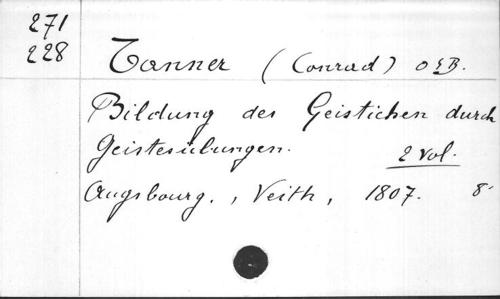 271
228
Tanner (Conrad) OSB.
Bildung der Geistichen durch
Geistesübungen.
2 vol.
Augsbourg., Veith, 1807. 8°